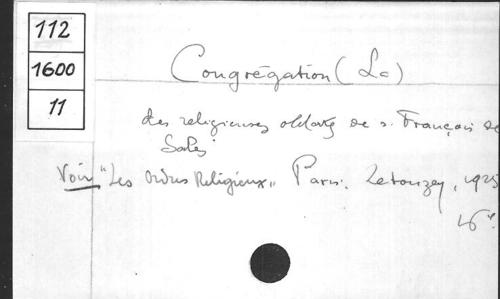 112
1600
11
Congrégation (La)
des religieuses oblates de s. François de
Sales
Voir "Les Ordres Religieux". Paris. Letouzey, 1925